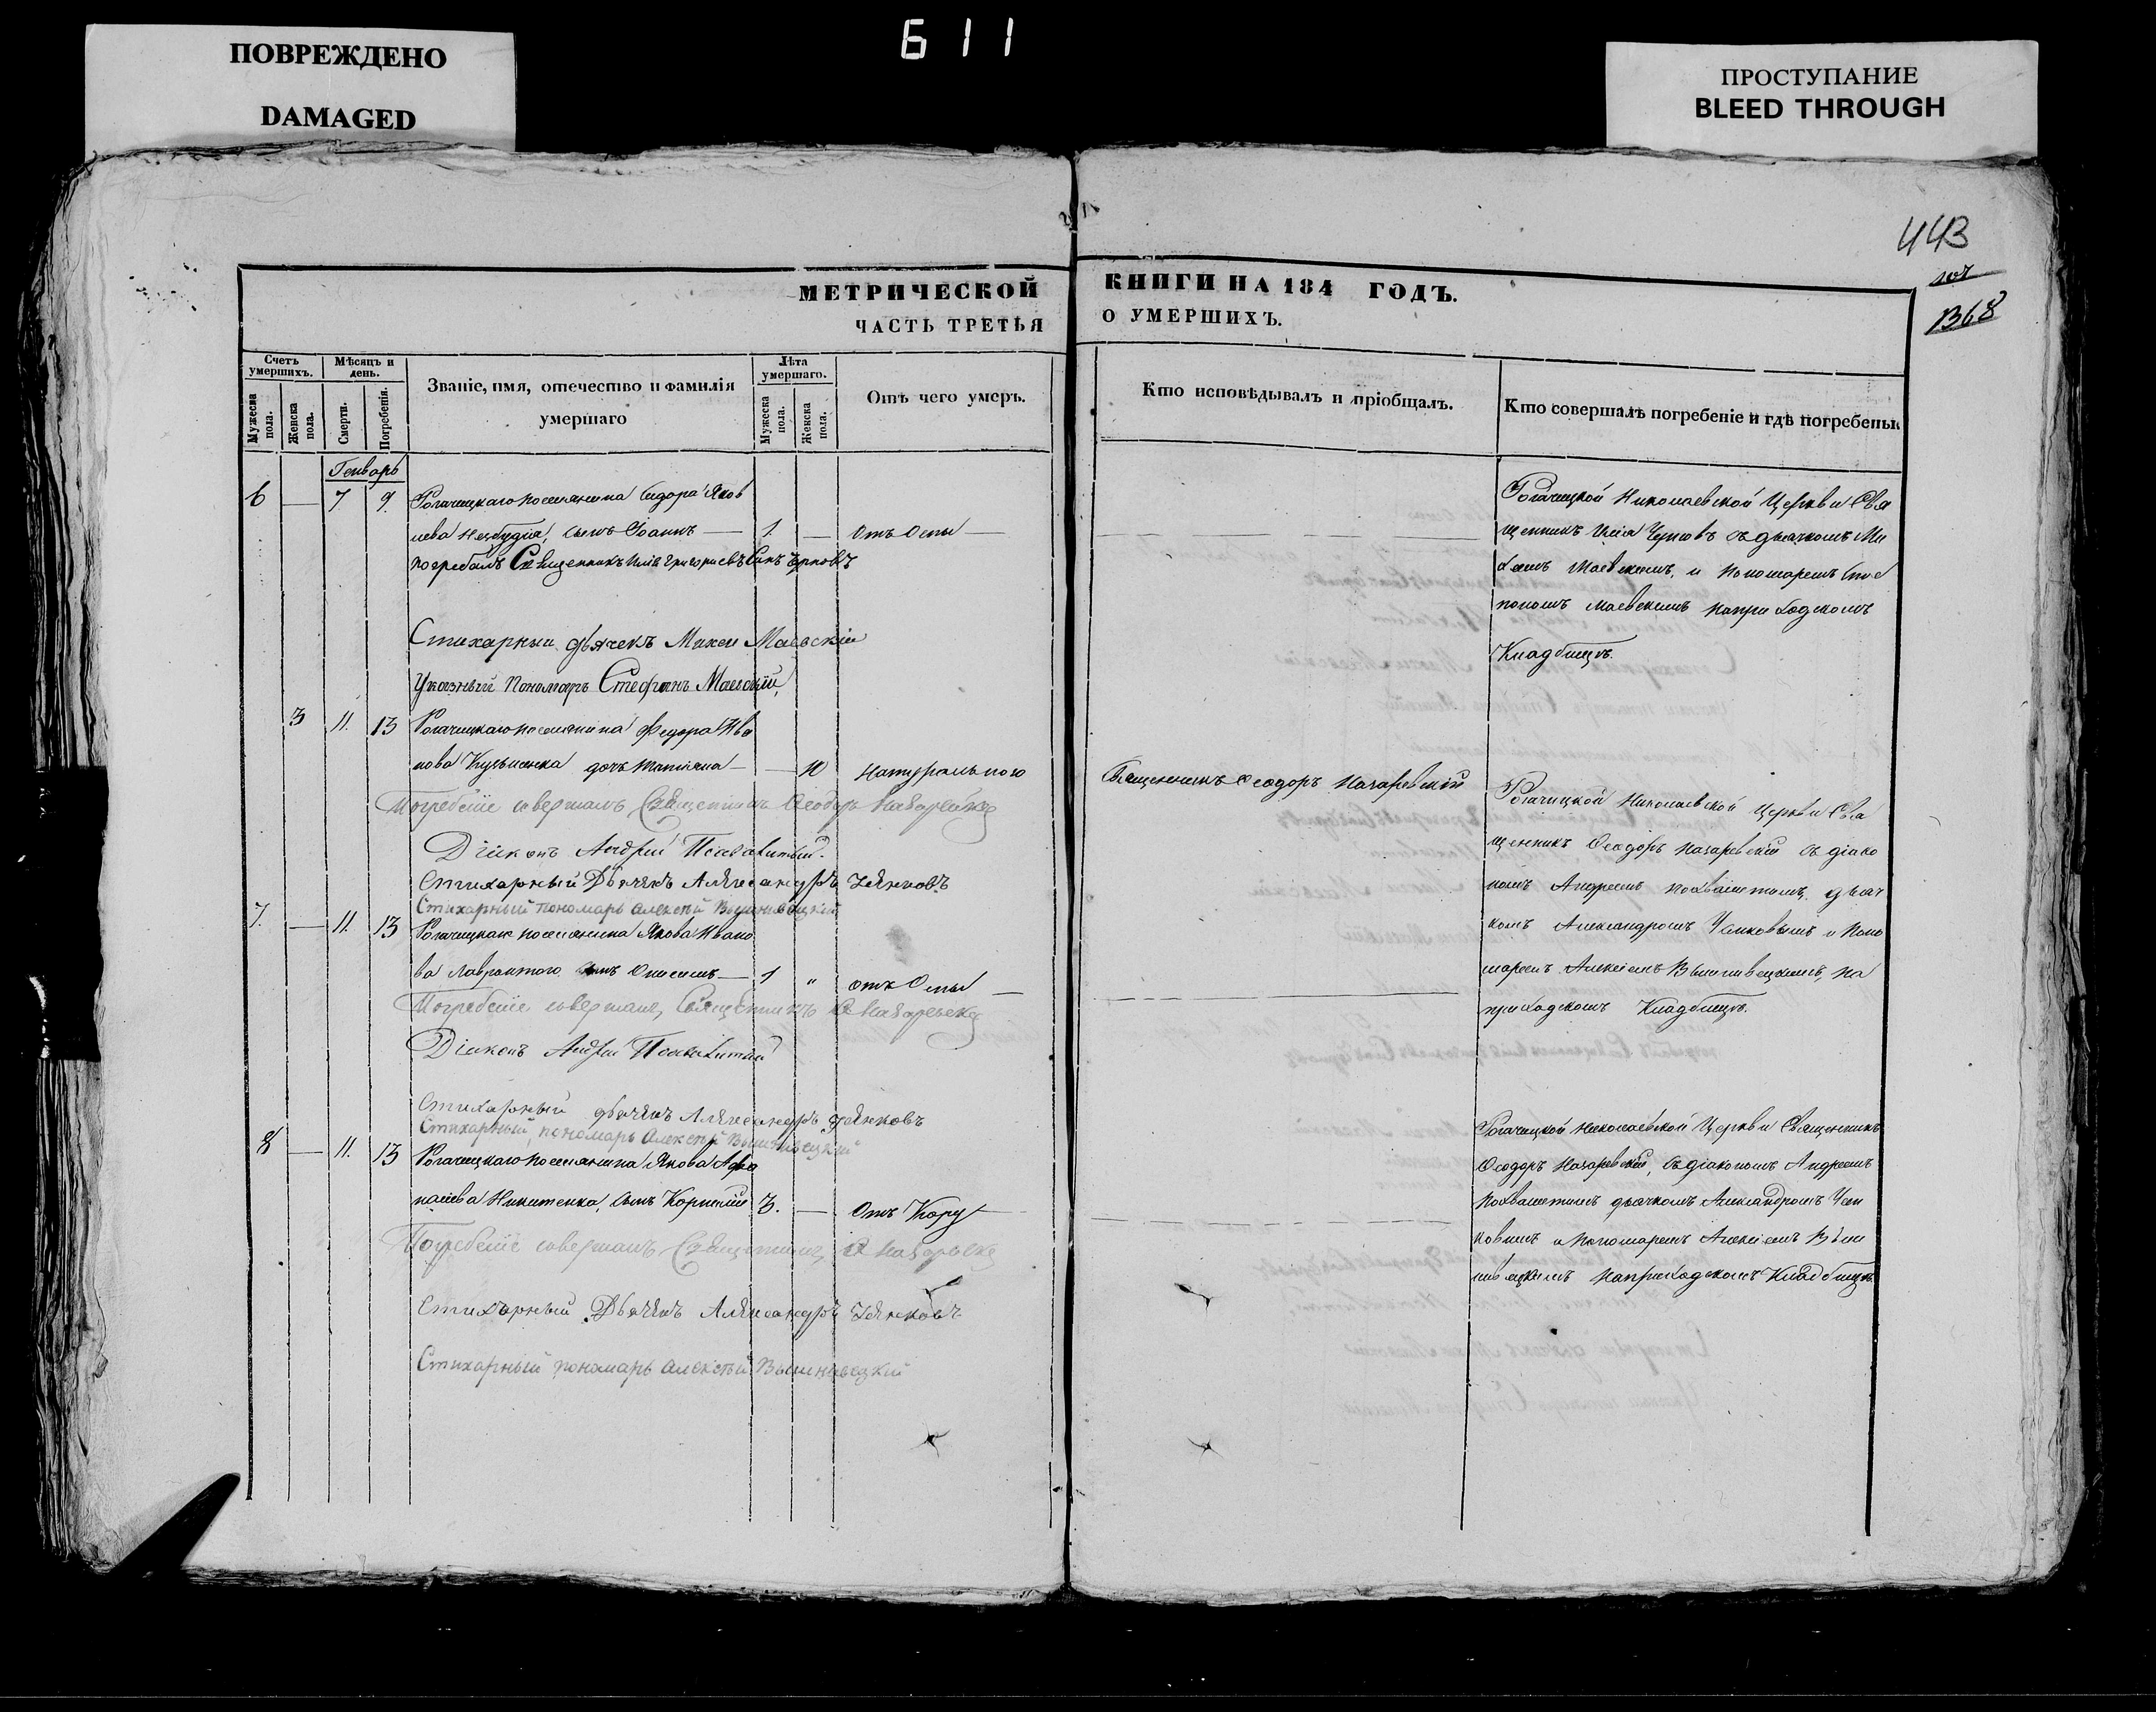 ПОВРЕЖДЕНО
DAMAGED
611
ПРОСТУПАНИЕ
BLEED THROUGH
443
1368
МЕТРИЧЕСКОЙ КНИГИ НА 184 ГОДЪ.
ЧАСТЬ ТРЕТЬЯ О УМЕРШИХЪ.
Счетъ умершихъ.
Мужеска пола.
Женска пола.
Мѣсяцъ и день.
Смерти.
Погребенія.
Званіе, имя, отечество и фамилія умершаго
Лѣта умершаго.
Мужеска пола.
Женска пола.
Отъ чего умеръ.
Кто исповѣдывалъ и пріобщалъ.
Кто совершалъ погребеніе и гдѣ погребены
Генварь
6 — 7 9 Рогачицкаго поселянина Сидора Яков
лева сынъ Іоаннъ — 1. — Отъ Оспы —
погребалъ Священникъ Илія Григорiевъ Сынъ Черновъ
Стихарный дьячекъ Михей Маевскій
Указный Пономарь Стефанъ Маевскій,
Рогачицкой Николаевской Церкви Свя
щенникъ Илія Черновъ съ дьячкомъ Ми
хеемъ Маевскимъ, и пономаремъ Сте
паномъ Маевскимъ на приходскомъ
Кладбищѣ.
3 11. 13 Рогачицкаго поселянина Федора Ива
нова Кузьменка дочь Татіана — — 10 Натурально
Погребеніе совершалъ Священникъ Ѳеодоръ Назаревскій
Діаконъ Андрей Похвалитый.
Стихарный Дьячекъ Александръ Чайковъ
Стихарный пономарь Алексѣй Вышнивецкій
Священникъ Ѳеодоръ Назаревскій
Рогачицкой Николаевской Церкви Свя
щенникъ Ѳеодоръ Назаревскій съ діако
номъ Андреемъ Похвалитымъ, дьяч
комъ Александромъ и Поно
маремъ Алексѣемъ Вышнивецкимъ, на
приходскомъ Кладбищѣ.
7. — 11. 13 Рогачицкаго поселянина Якова Ивано
ва сынъ Онисимъ — 1 " отъ Оспы —
Погребеніе совершалъ, Священникъ Ѳ Назаревскій
Діаконъ Андрей Похвалитый
Стихарный дьячекъ Александръ
Стихарный пономарь Алексѣй Вышнивецкій
8 — 11. 13 Рогачицкаго поселянина Якова Афа
насіева Никитенка, сынъ Корнилій 3. — Отъ Кору —
Погребеніе совершалъ Священникъ, Ѳ Назаревскій
Стихарный Дьячекъ Александръ
Стихарный пономарь Алексѣй Вышнивецкій
Рогачицкой Николаевской Церкви Священникъ
Ѳеодоръ Назаревскій, съ діакономъ Андреемъ
Похвалитымъ дьячкомъ Александромъ
и Пономаремъ Алексѣемъ Выш
нивецкимъ на приходскомъ Кладбищѣ